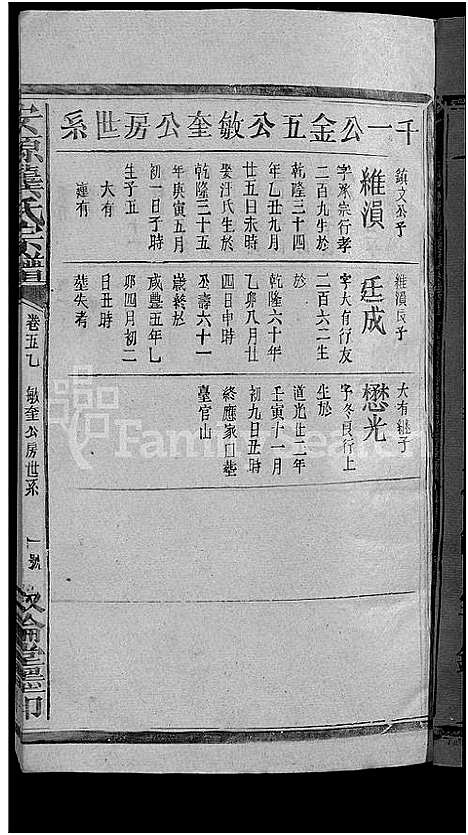 千一公金五公敏奎公房世系
鎮文公子
維湨
字承宗行孝
二百九生於
乾隆三十四
年乙丑九月
廿五日未時
娶汪氏生於
乾隆三十五
年庚寅五月
初一日子時
生子五
大有
連有
維湨長子
廷成
字大有行友
二百六二生
於
乾隆六十年
乙卯八月廿
四日申時
公壽六十一
歲終於
咸豐五年乙
卯四月初二
日丑時
塟失考
大有継子
懋光
字冬良行上
生於
道光廿二年
壬寅十一月
初九日丑時
終應家口塟
臺官山
龔氏宗譜
卷五乙
敏奎公房世系
一號
敘倫堂謹印
FamilySearch